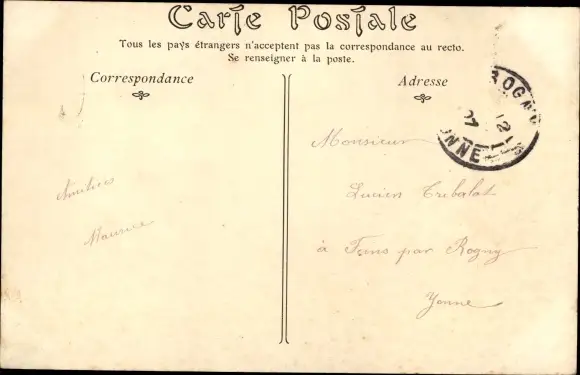 Carte Postale
Tous les pays étrangers n'acceptent pas la correspondance au recto.
Se renseigner à la poste.
Correspondance
Adresse
ROGNY
YONNE
Monsieur
Lucien Tribalat
à par Rogny
Yonne
Amitiés
Maurice